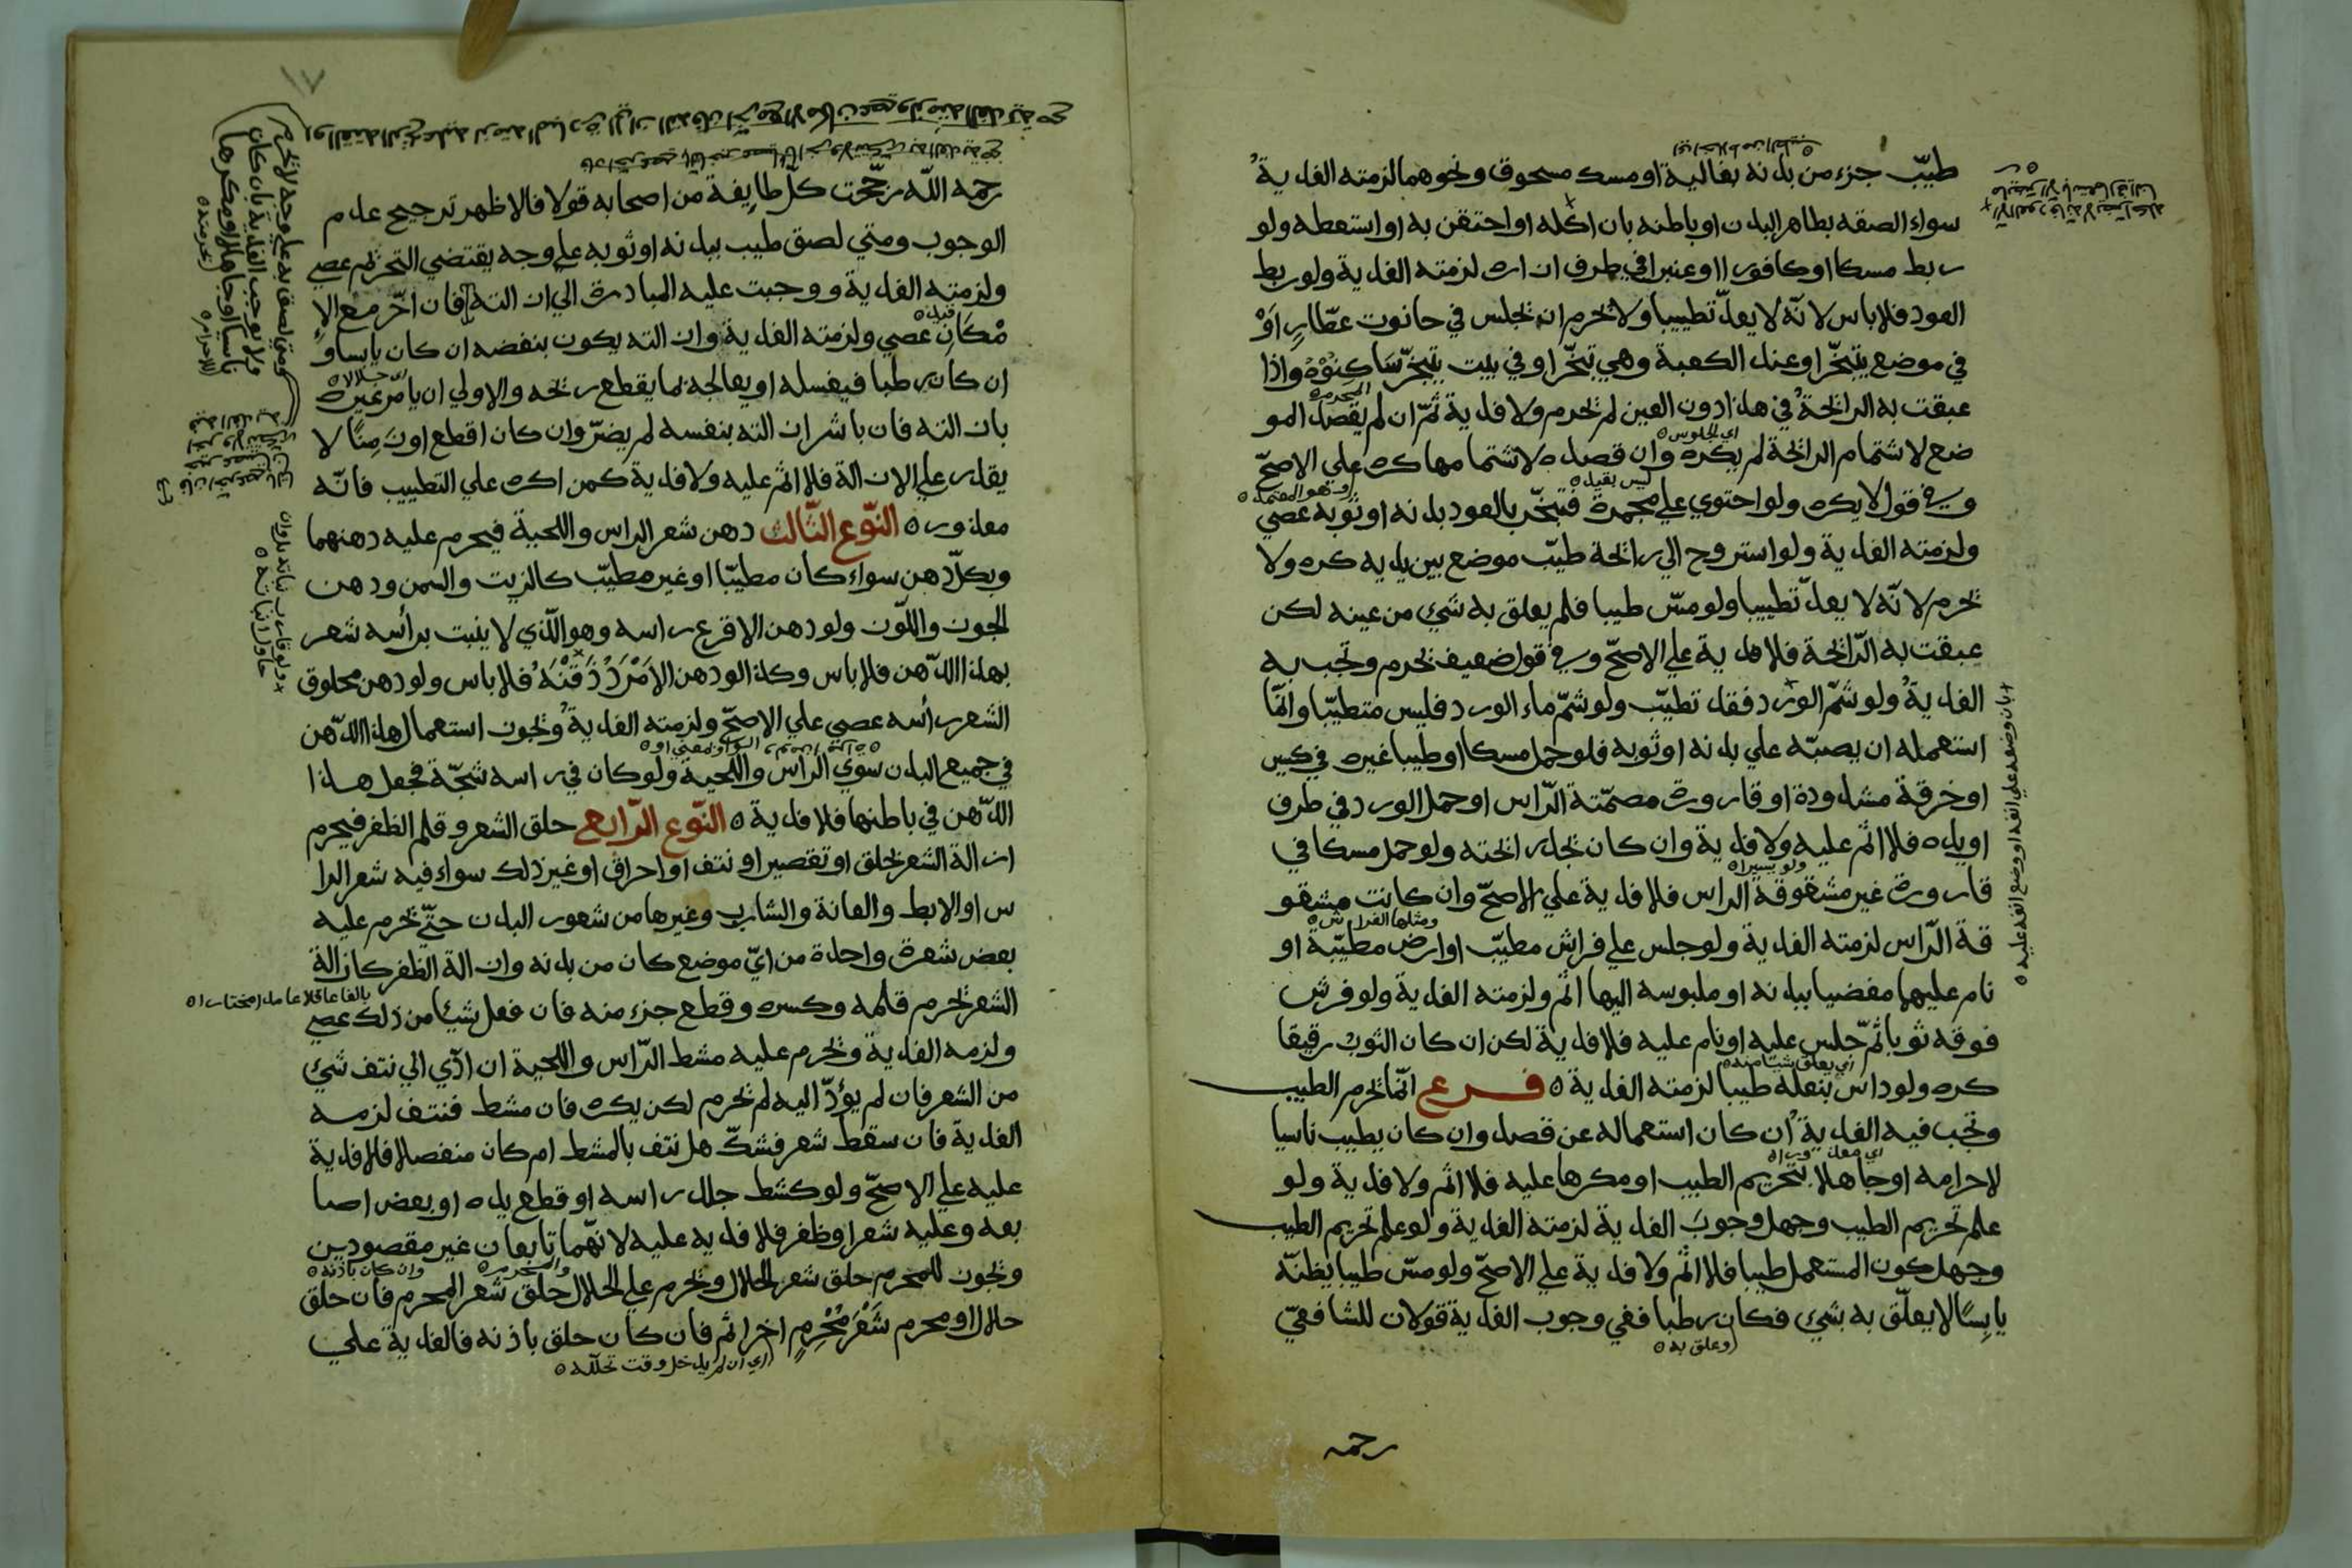 طيّب جزء من بدنه بغالية او مسك مسحوق ونحوهما لزمته الفدية
سواء الصقه بظاهر البدن او باطنه بان اكله او احتقن به او استعطه ولو
ربط مسكا او كافورا او عنبرا في طرف ازاره لزمته الفدية ولو ربط
العود فلا باس لانّه لا يعدّ تطييبا ولا يحرم ان يجلس في حانوت عطّارٍ اوْ
في موضع يتبخّر او عند الكعبة وهي تبخّر او في بيت يتبخّر ساكنوه واذا
عبقت به الرائحة في هذا دون العين لم يحرم ولا فدية ثمّ ان لم يقصد المو
ضع لاشتمام الرائحة لم يكره وان قصده لاشتمامها كره علي الاصحّ
وفي قول لا يكره ولو احتوي علي مجمرة فتبخّر بالعود بدنه او ثوبه عصي
ولزمته الفدية ولو استروح الي رائحة طيّب موضع بين يديه كره ولا
يحرم لانّه لا يعدّ تطييبا ولو مسّ طيبا فلم يعلق به شئ من عينه لكن
عبقت به الرّائحة فلا فدية علي الاصحّ وفي قول ضعيف يحرم وتجب به
الفدية ولو شمّ الورد فقد تطيّب ولو شمّ ماء الورد فليس متطيّبا وانّما
استعمله ان يصبّه علي بدنه او ثوبه فلو حمل مسكا او طيبا غيره في كيس
او خرقة مشدودة او قارورة مصمّتة الرّاس او حمل الورد في طرف
او يده فلا اثم عليه ولا فدية وان كان يجد رائحته ولو حمل مسكا في
قارورة غير مشقوقة الراس فلا فدية علي الاصحّ وان كانت مشقو
قة الرّاس لزمته الفدية ولو جلس علي فراش مطيّب او ارض مطيّبة او
نام عليهما مفضيا ببدنه او ملبوسه اليها اثم ولزمته الفدية ولو فرش
فوقه ثوبا ثمّ جلس عليه او نام عليه فلا فدية لكن ان كان الثوب رقيقا
كره ولو داس بنعله طيبا لزمته الفدية ٥ فرع انّما يحرم الطيب
وتجب فيه الفدية ان كان استعماله عن قصد وان كان يطيب ناسيا
لاحرامه او جاهلا بتحريم الطيب او مكرها عليه فلا اثم ولا فدية ولو
علم تحريم الطيب وجهل وجوب الفدية لزمته الفدية ولو علم تحريم الطيب
وجهل كون المستعمل طيبا فلا اثم ولا فدية علي الاصحّ ولو مسّ طيبا يظنّه
يابسًا لا يعلّق به بشي فكان رطبا ففي وجوب الفدية قولان للشافعيّ
وعلق به ٥
رحمه
رحمه اللّه رجّحت كلّ طايفة من اصحابه قولا فالاظهر ترجيح عدم
الوجوب ومتي لصق طيب ببدنه او ثوبه علي وجه يقتضي التحريم عصي
ولزمته الفدية ووجبت عليه المبادرة الي ازالته فان اخّر مع الا
مْكَانِ عصي ولزمته الفدية وازالته يكون بنفضه ان كان يابسا و
ان كان رطبا فيغسله او يعالجه بما يقطع ريحه والاولي ان يامر غيره
بازالته فان باشر ازالته بنفسه لم يضرّ وان كان اقطع او زَمِنًا لا
يقدر علي الازالة فلا اثم عليه ولا فدية كمن اكره علي التطييب فانّه
معذور ٥ النّوع الثّالث دهن شعر الراس واللحية فيحرم عليه دهنهما
وبكلّ دهن سواء كان مطيّبا او غير مطيّب كالزيت والسمن ودهن
الجوز واللّوز ولو دهن الاقرع راسه وهو الّذي لا ينبت برأسه شعر
بهذا الدّهن فلا باس وكذا لو دهن الامْرَدُ ذَقنَهُ فلا باس ولو دهن محلوق
الشعر رأسه عصي علي الاصحّ ولزمته الفدية ويجوز استعمال هذا الدّهن
في جميع البدن سوي الراس واللّحية ولو كان في راسه شجّة فجعل هذا
الدّهن في باطنها فلا فدية ٥ النّوع الرّابع حلق الشعر وقلم الظفر فيحرم
ازالة الشعر بحلق او تقصير او نتف او احراق او غير ذلك سواء فيه شعر الرا
س او الابط والعانة والشارب وغيرها من شعور البدن حتّي يحرم عليه
بعض شعرة واحدة من ايّ موضع كان من بدنه وازالة الظفر كازالة
الشعر يحرم قلمه وكسره وقطع جزء منه فان فعل شيئا من ذلك عصي
بالغا عاقلا عامدا مختارا ٥
ولزمه الفدية ويحرم عليه مشط الرّاس واللحية ان ادّي الي نتف شئ
من الشعر فان لم يؤدّ اليه لم يحرم لكن يكره فان مشط فنتف لزمه
الفدية فان سقط شعر فشكّ هل نتف بالمشط ام كان منفصلا فلا فدية
عليه علي الاصحّ ولو كشط جلد راسه او قطع يده او بعض اصا
بعه وعليه شعر او ظفر فلا فدية عليه لانّهما تابعان غير مقصودين
ويجوز للمحرم حلق شعر الحلال ويحرم علي الحلال حلق شعر المحرم فان حلق
حلال او محرم شَعْر مُحْرِمٍ اخر اثم فان كان حلق باذنه فالفدية علي
اي ان لم يدخل وقت تحلّله ٥